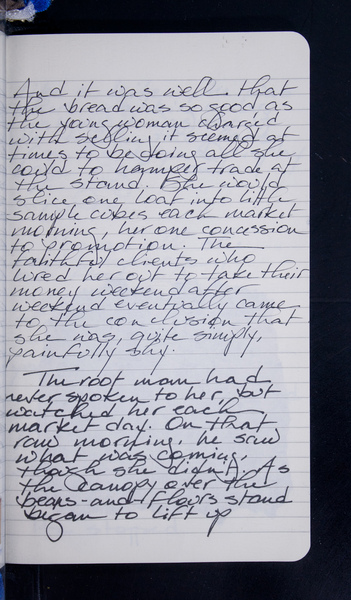 And it was well that
the bread was so good, as
the young woman charged
with selling it seemed at
times to be doing all she
could to hamper trade at
the stand. She would
slice one loaf into little
sample cubes each market
morning, her one concession
to promotion. The
faithful clients who
lured her out to take their
money weekend after
weekend eventually came
to the conclusion that
she was, quite simply,
painfully shy.
The root man had
never spoken to her, but
watched her each
market day. On that
raw morning, he saw
what was coming,
though she didn't. As
the canopy over the
beans-and-flours stand
began to lift up